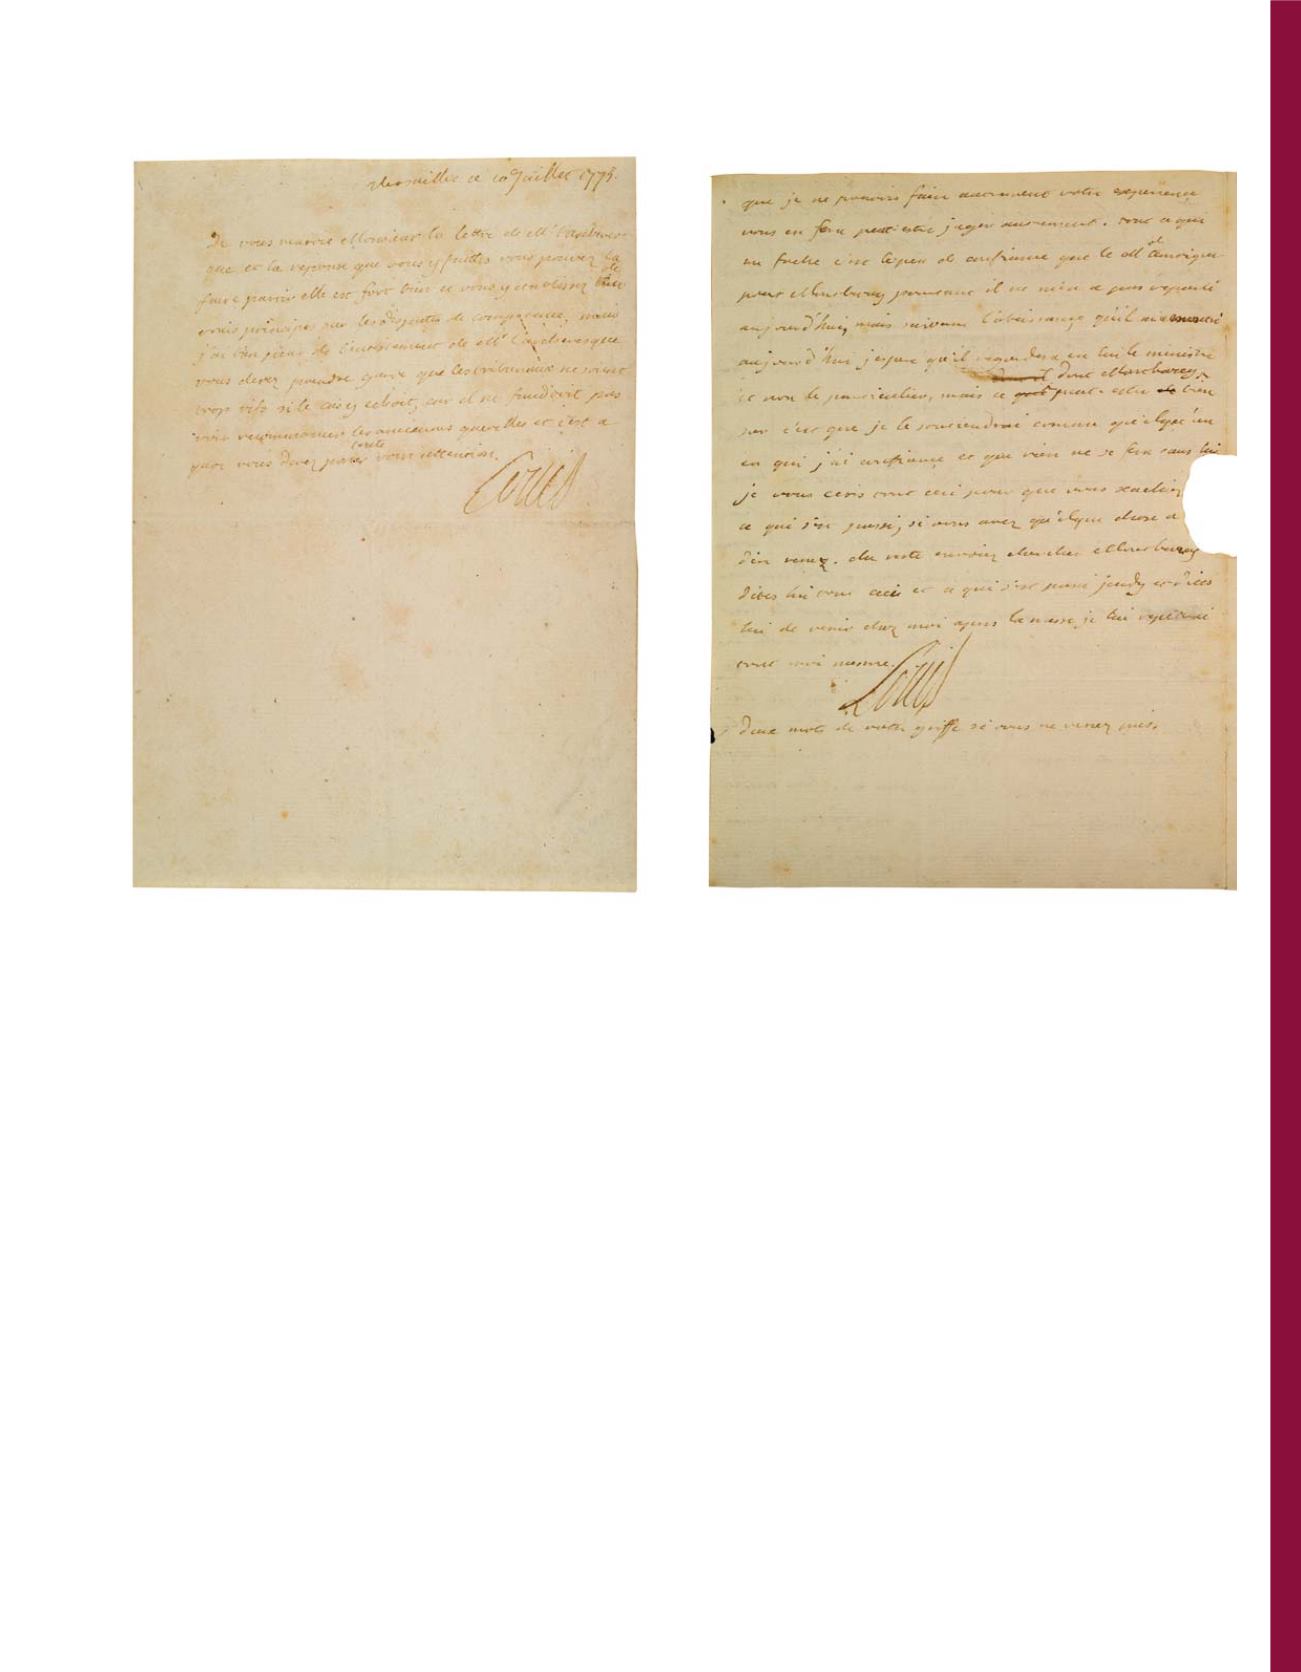 Versailles ce 10 Juillet 1775.
Je vous renvoie Monsieur la lettre de Mr l'archeves-
que et la reponse que vous y faittes vous pouvez la
faire partir elle est fort bien et vous y etablissez les
vrais principes sur les disputes de competence, mais
j'ai bien peur de l' de Mr l'archevesque
vous devez prendre garde que les tribunaux ne soient
trop vifs si le cas y echoit, car il ne faudroit pas
voir recommencer les anciennes querelles et c'est a
quoi vous devez porter toute votre attention.
Louis
que je ne pouvois faire autrement votre experience
vous en fera peut estre juger autrement. tout ce qui
me fache c'est le peu de confiance que le Mal
pour Montbarey pourtant il ne m'en a pas reparlé
aujourd'hui, mais suivant l'obeissance qu'il a
aujourd'hui j'espere qu'il regardera en lui le ministre
dont Montbarey
et non le particulier, mais ce peut estre bien
sur c'est que je le soutiendrai comme quelqu'un
en qui j'ai confiance et que rien ne se fera sans lui
je vous ecris tout ceci pour que vous sachiez
ce qui s'est passé, si vous avez quelque chose a
dire venez. du reste envoiez chercher Montbarey
dites lui tout ceci et ce qui s'est passé jeudy et dites
lui de venir chez moi apres la messe je lui repeterai
tout moi mesme.
Louis
Deux mots de votre griffe si vous ne venez pas.